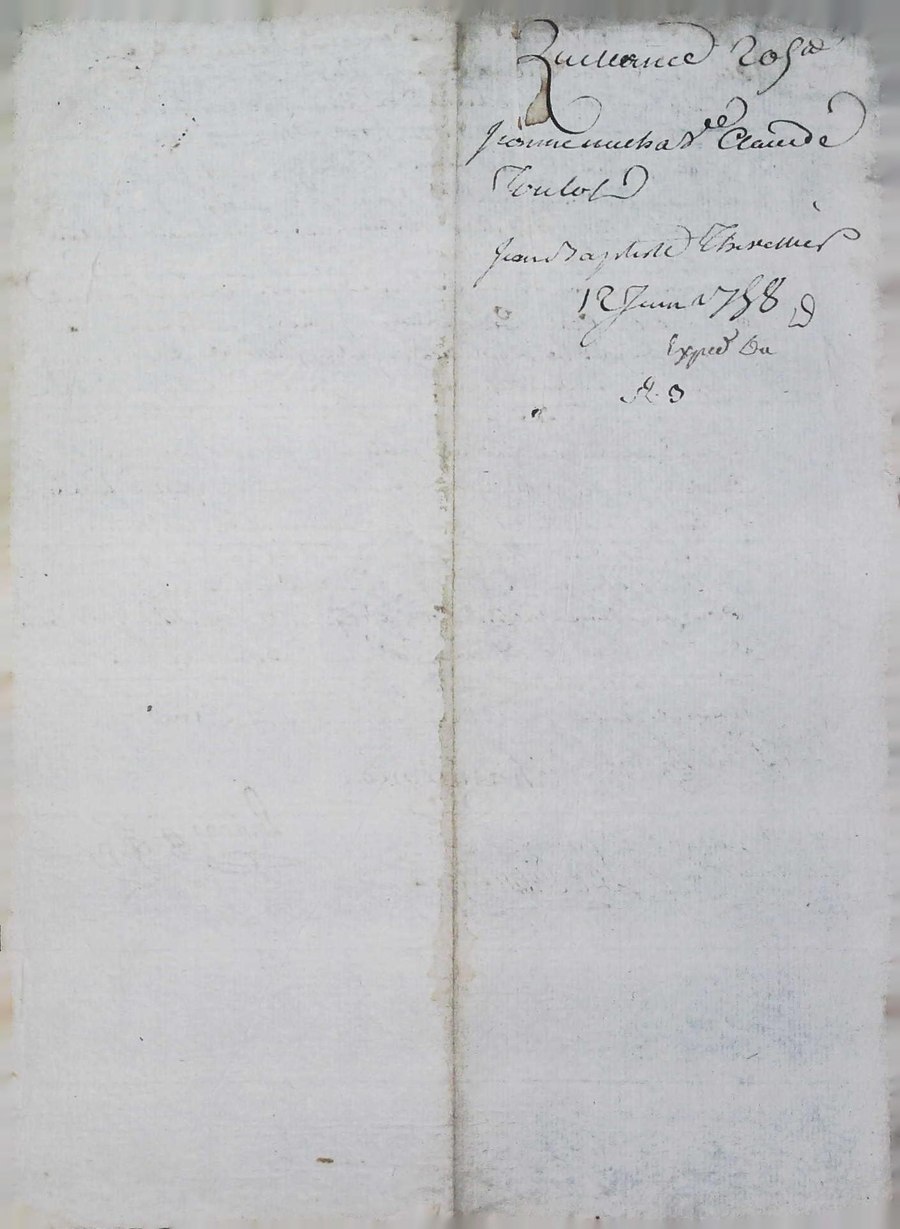 Quittance 205#
Jeanne micha v^e Claude
Toulot
Jean Baptiste Thevenier
12 Juin 1758
Exped Du